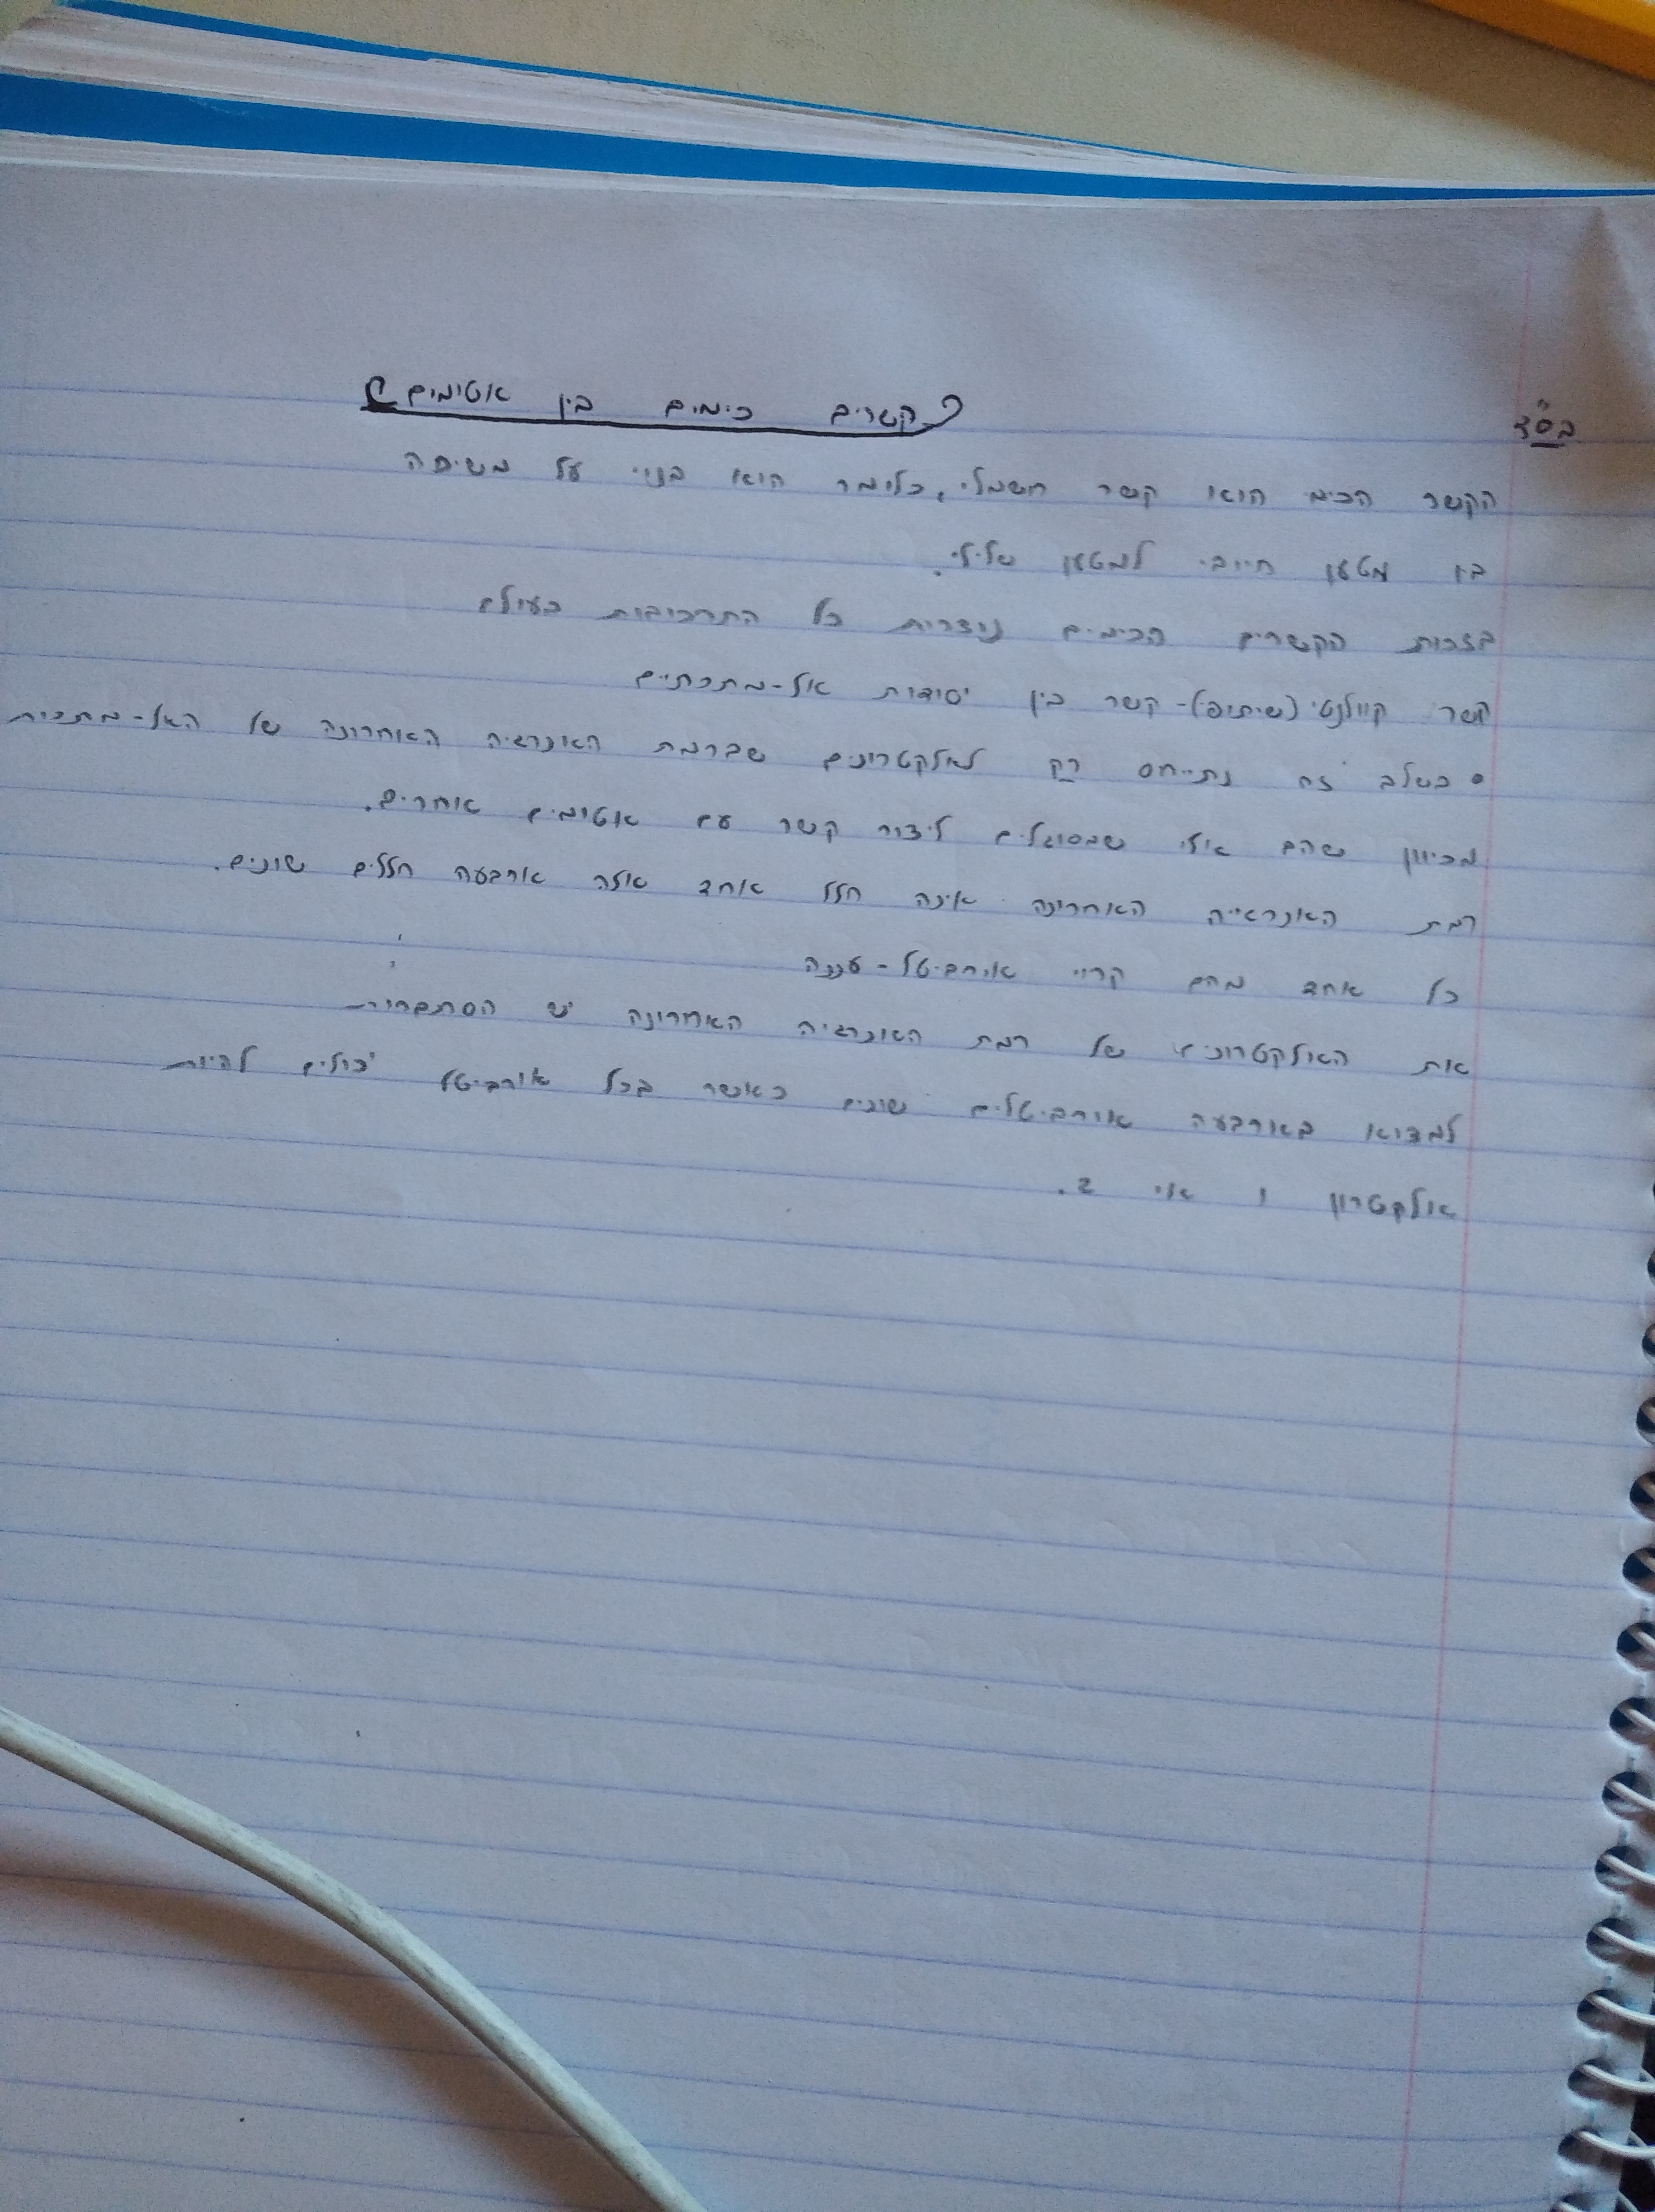 בס"ד
קשרים כימים בין אטומים
הקשר הכימי הוא קשר חשמלי, כלומר הוא בנוי על משיכה
בין מטען חיובי למטען שלילי.
בזכות הקשרים הכימים נוצרות כל התרכובות בעולם
קשר קוולנטי (שיתופי)- קשר בין יסודות אל-מתכתיים
• בשלב זה נתייחס רק לאלקטרונים שברמת האנרגיה האחרונה של האל-מתכות
מכיוון שהם אלו שמסוגלים ליצור קשר עם אטומים אחרים.
רמת האנרגייה האחרונה אינה חלל אחד אלה ארבעה חללים שונים.
כל אחד מהם קרוי אורביטל - עננה
את האלקטרונים של רמת האנרגיה האחרונה יש הסתברות
למצוא בארבעה אורביטלים שונים כאשר בכל אורביטל יכולים להיות
אלקטרון 1 או 2.